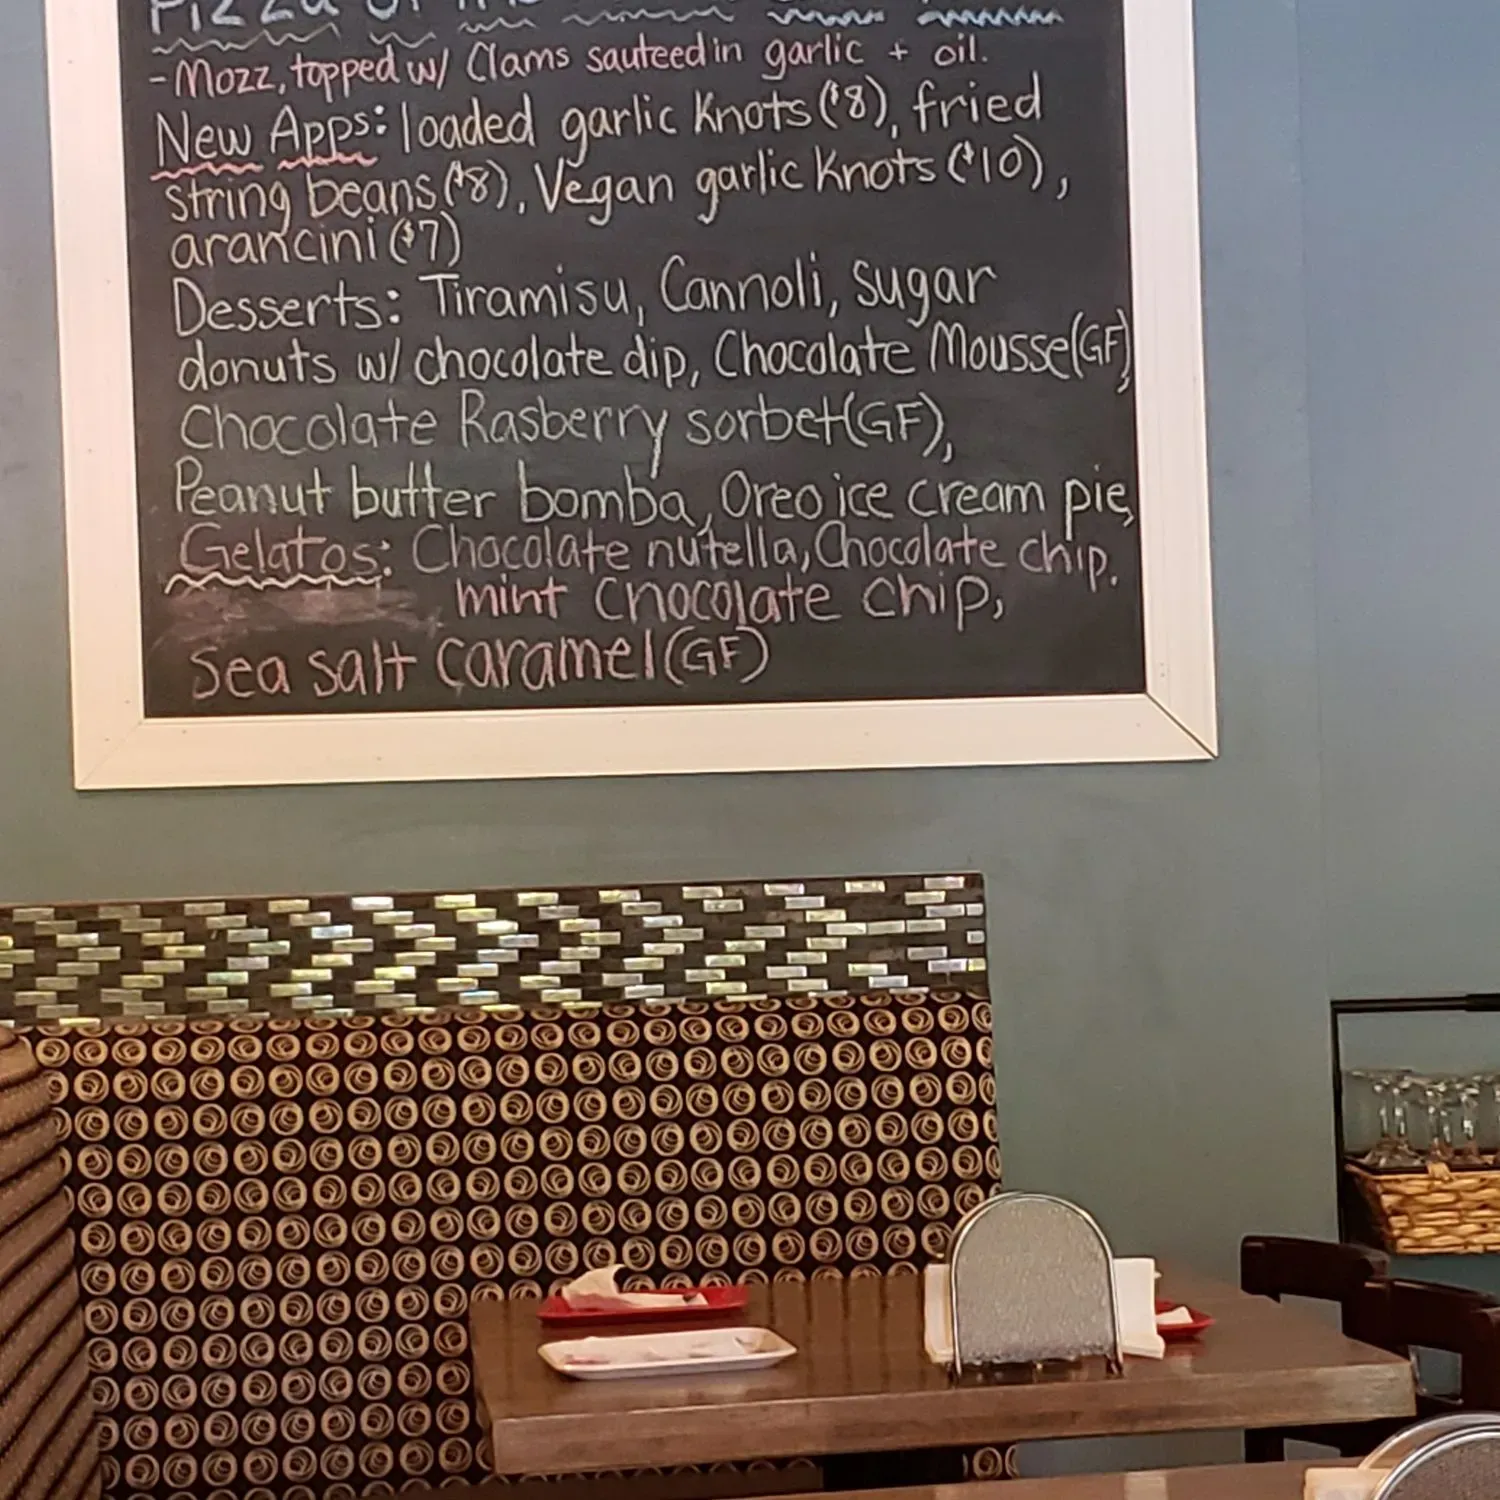 Pizza of the
- Mozz, topped w/ Clams sauteed in garlic + oil.
New Apps: loaded garlic Knots ($8), fried
string beans ($8), Vegan garlic Knots ($10),
arancini ($7)
Desserts: Tiramisu, Cannoli, sugar
donuts w/ chocolate dip, Chocolate Mousse (GF),
Chocolate Rasberry sorbet (GF),
Peanut butter bomba, Oreo ice cream pie,
Gelatos: Chocolate nutella, Chocolate chip.
mint chocolate chip,
Sea salt caramel (GF)